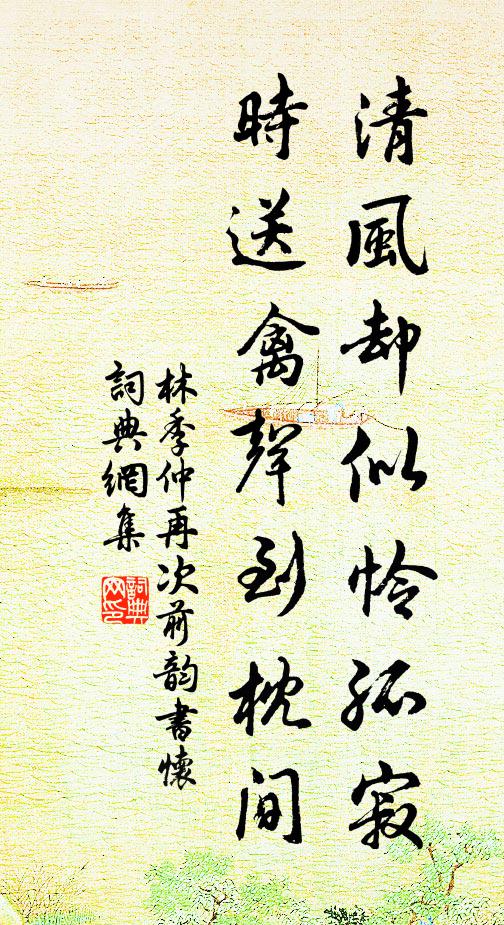 清風却似怜孤寂
時送禽聲到枕間
林季仲再次前韵書懷
詞典網集
詞典
网印